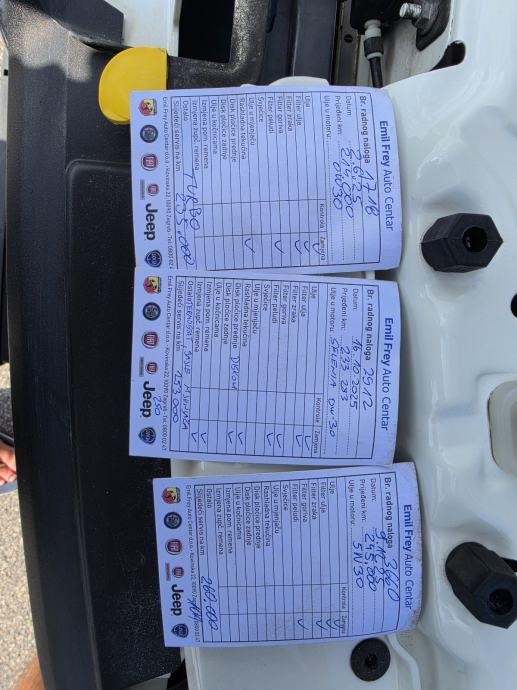 Emil Frey Auto Centar
Br. radnog naloga 1718
Datum:
Prijeđeni km: 274.000
Ulje u motoru: 0W30
Kontrola Zamjena
Ulje
Filter ulja
Filter zraka
Filter goriva
Filter peludi
Svjećice
Ulje u mjenjaču
Rashladna tekućina
Disk pločice prednje
Disk pločice zadnje
Ulje u kočnicama
Izmjena pom. remena
Izmjena zupč. remena
Ostalo TURBO
Sljedeći servis na km 295.000
Emil Frey Auto Centar d.o.o. - Kovinska 22, 10090 Zagreb - Tel. 0800 02 4
Jeep
Emil Frey Auto Centar
Br. radnog naloga 2912
Datum: 16.10.2025
Prijeđeni km: 233 233
Ulje u motoru: SELENIA 0W30
Kontrola Zamjena
Ulje
Filter ulja
Filter zraka
Filter goriva
Filter peludi
Svjećice
Ulje u mjenjaču
Rashladna tekućina
Disk pločice prednje DISKOVI
Disk pločice zadnje
Ulje u kočnicama
Izmjena pom. remena
Izmjena zupč. remena
Ostalo TERMOSTAT,
Sljedeći servis na km 253.000
Emil Frey Auto Centar d.o.o. - Kovinska 22, 10090 Zagreb - Tel. 0800 02 47
Jeep
250
Emil Frey Auto Centar
Br. radnog naloga 3660
Datum:
Prijeđeni km: 245.000
Ulje u motoru: 5W30
Kontrola Zamjena
Ulje
Filter ulja
Filter zraka
Filter goriva
Filter peludi
Svjećice
Ulje u mjenjaču
Rashladna tekućina
Disk pločice prednje
Disk pločice zadnje
Ulje u kočnicama
Izmjena pom. remena
Izmjena zupč. remena
Ostalo
Sljedeći servis na km 260.000
Emil Frey Auto Centar d.o.o. - Kovinska 22, 10090
Jeep